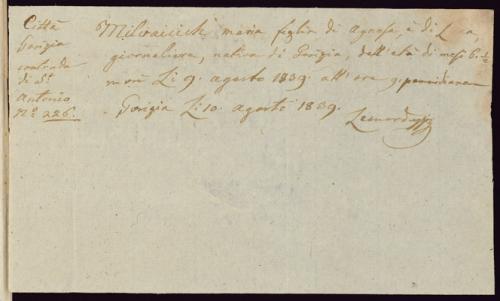 Città
Gorizia
contrada
di St.
Antonio
N° 226.
Milvaicich maria figlia di Agnese, e di
giornaliera, nativa di Gorizia, dell'età di mesi 6.
morì Li 9. agosto 1839. all'ore 9. pomeridiane
Gorizia Li 10. agosto 1839.